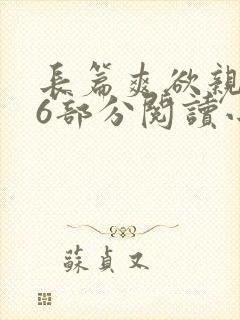 長篇爽欲親
6部分閱讀小
蘇貞又